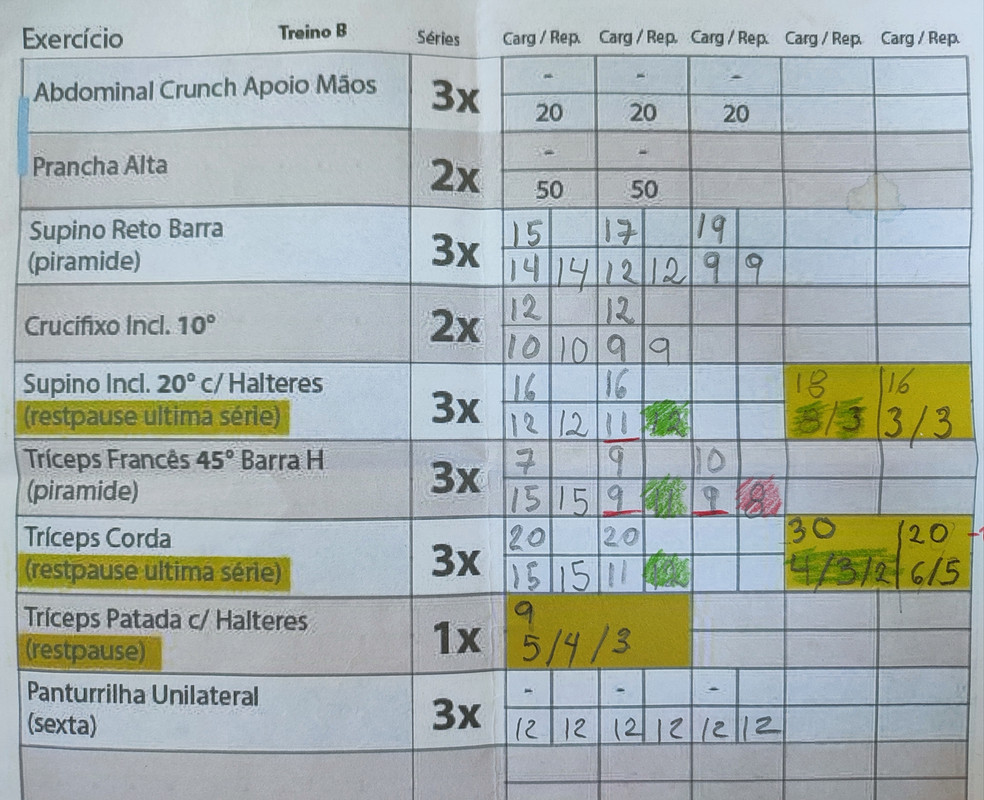 Exercício Treino B Séries Carg / Rep. Carg / Rep. Carg / Rep. Carg / Rep. Carg / Rep.
Abdominal Crunch Apoio Mãos 3x - - -
20 20 20
Prancha Alta 2x - -
50 50
Supino Reto Barra 15 17 19
(piramide) 3x 14 14 12 12 9 9
Crucifixo Incl. 10° 2x 12 12
10 10 9 9
Supino Incl. 20° c/ Halteres 16 16 18 16
(restpause ultima série) 3x 12 12 11 3/3 3/3
Tríceps Francês 45° Barra H 7 9 10
(piramide) 3x 15 15 9 9 8
Tríceps Corda 20 20 30 20
(restpause ultima série) 3x 15 15 11 4/3/2 6/5
Tríceps Patada c/ Halteres 9
(restpause) 1x 5/4/3
Panturrilha Unilateral - - -
(sexta) 3x 12 12 12 12 12 12